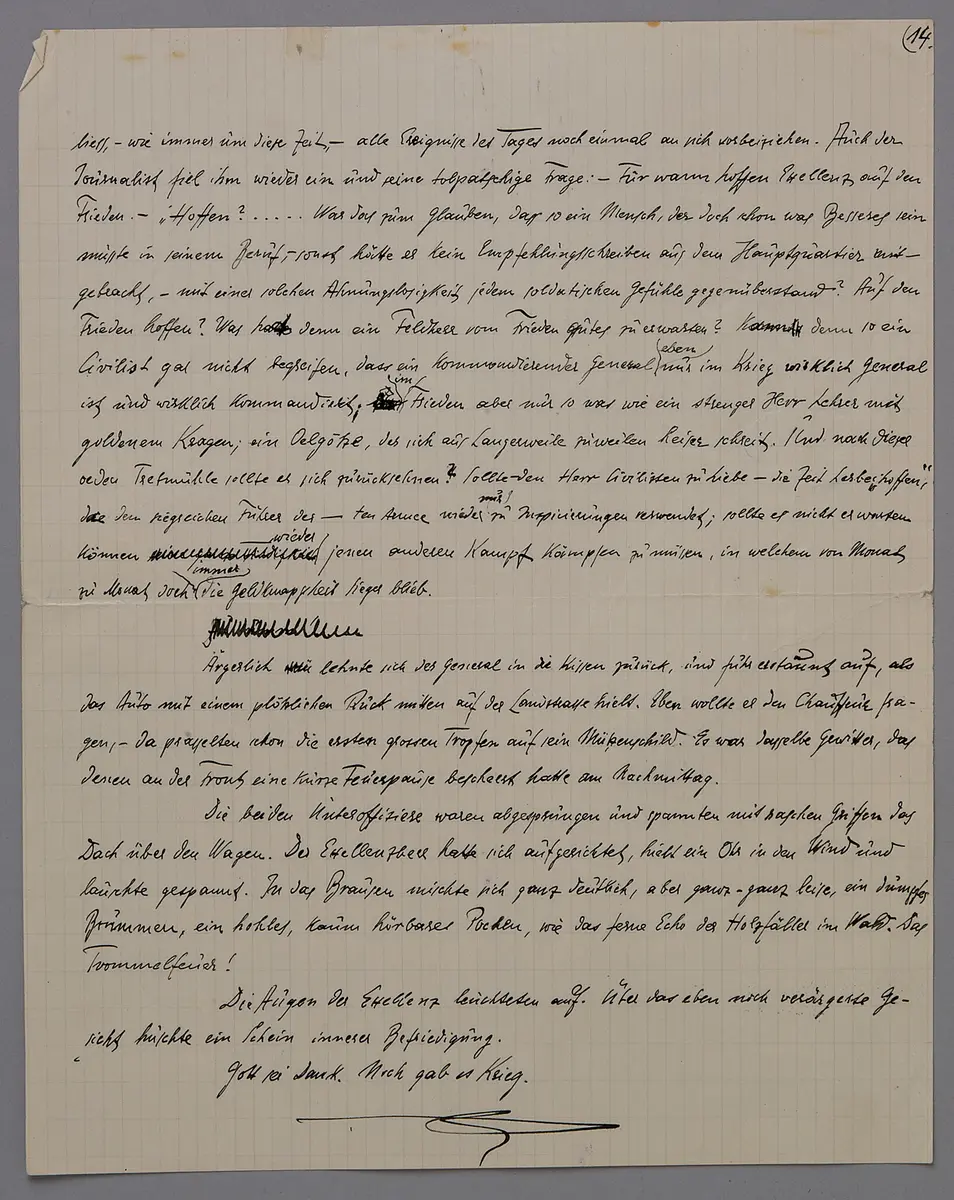 (14.
liess, – wie immer um diese Zeit, – alle Ereignisse des Tages noch einmal an sich vorbeiziehen. Auch der
Journalist fiel ihm wieder ein und seine tolpatschige Frage: – Für wann hoffen Exellenz auf den
Frieden. – „Hoffen? ..... War das zum Glauben, dass so ein Mensch, der doch schon was Besseres sein
müsste in seinem Beruf, – sonst hätte er kein Empfehlungsschreiben aus dem Hauptquartier mit–
gebracht, – mit einer solchen Ahnungslosigkeit jedem soldatischen Gefühle gegenüberstand? Auf den
Frieden hoffen? Was hat denn ein Feldherr vom Frieden gutes zu erwarten? Kann denn so ein
Civilist gar nicht begreifen, dass ein kommandierender General (eben) nur im Krieg wirklich General
ist und wirklich kommandiert; im Frieden aber nur so was wie ein strenger Herr Lehrer mit
goldenem Kragen; ein Oelgötze, der sich aus Langerweile zuweilen heiser schreit. Und nach dieser
oeden Tretmühle sollte er sich zurücksehnen? Sollte den Herr Civilisten zu Liebe – die Zeit herbei „hoffen",
die den siegreichen Führer der – ten Armee wieder nur zu Inspizierungen verwendet; sollte er nicht erwarten
können wieder jenen anderen Kampf kämpfen zu müssen, in welchem von Monat
zu Monat doch immer die Geldknappheit Sieger blieb.
Ärgerlich lehnte sich der General in die Kissen zurück, und fuhr erstaunt auf, als
das Auto mit einem plötzlichen Ruck mitten auf der Landstrasse hielt. Eben wollte er den Chauffeur fra–
gen, – da prasselten schon die ersten grossen Tropfen auf sein Mützenschild. Es war dasselbe Gewitter, das
denen an der Front eine kurze Feuerpause bescheert hatte am Nachmittag.
Die beiden Unteroffiziere waren abgesprungen und spannten mit raschen Griffen das
Dach über den Wagen. Der Exellenzherr hatte sich aufgerichtet, hielt ein Ohr in den Wind und
lauschte gespannt. In das Brausen mischte sich ganz deutlich, aber ganz – ganz leise, ein dumpfes
Brummen, ein hohles, kaum hörbares Pochen, wie das ferne Echo der Holzfäller im Wald. Das
Trommelfeuer!
Die Augen der Exellenz leuchteten auf. Über das eben noch verärgerte Ge–
sicht huschte ein Schein innerer Befriedigung.
Gott sei Dank. Noch gab es Krieg.